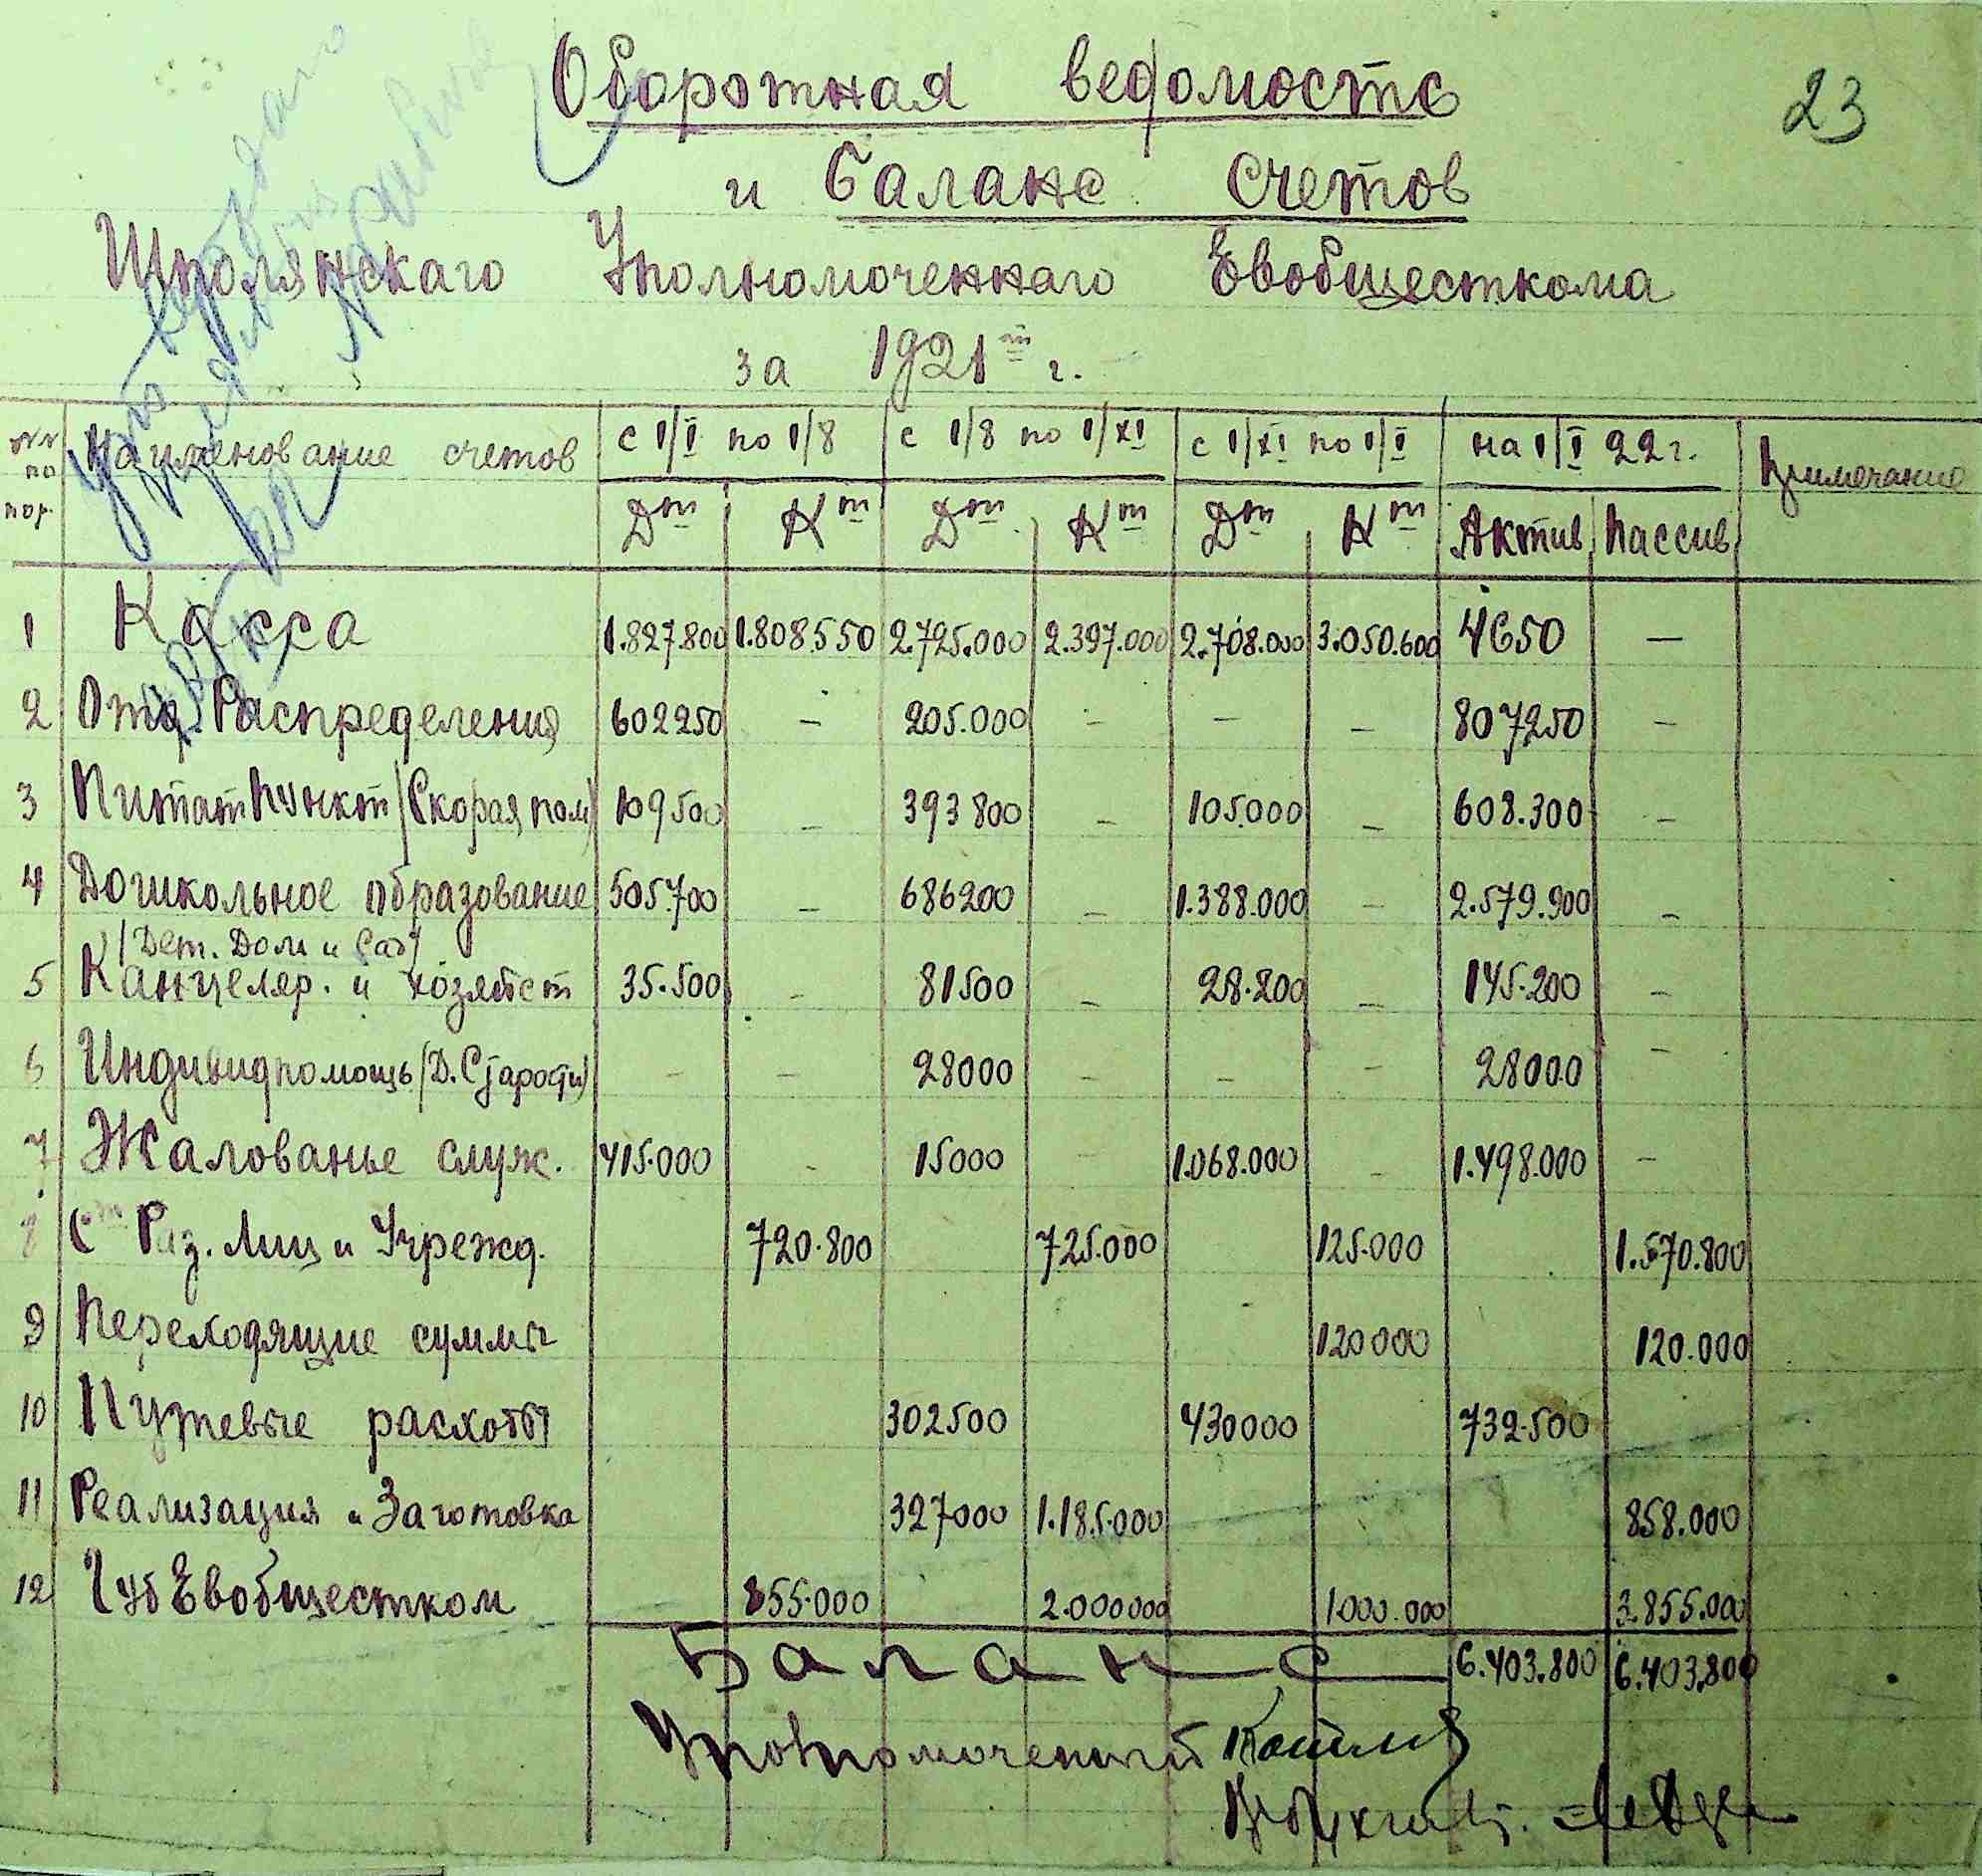 23
Оборотная ведомость
и баланс счетов
Шполянскаго Уполномоченнаго Евобщесткома
за 1921 г.
№№ по пор. Наименование счетов с 1/I по 1/8 с 1/8 по 1/XI с 1/XI по 1/I на 1/I 22 г. Примечание
Дт Кт Дт Кт Дт Кт Актив Пассив
1 Касса 1.827.800 1.808.550 2.725.000 2.397.000 2.708.000 3.050.600 4650 —
2 Отд. Распределения 602250 — 205.000 — — — 807250 —
3 ПитатПункт (Скорая пом) 109500 — 393800 — 105.000 — 608.300 —
4 Дошкольное образование 505.700 — 686200 — 1.388.000 — 2.579.900 —
(Дет. Дом и Сад)
5 Канцеляр. и хозяйст 35.500 — 81500 — 28.200 — 145.200 —
6 Индивидпомощь (Д. Старости) — — 28000 — — — 28000 —
7 Жалованье служ. 415.000 — 15000 — 1.068.000 — 1.498.000 —
8 Ст Раз. Лиц и Учрежд. 720.800 725.000 125.000 1.570.800
9 Переходящие суммы 120000 120.000
10 Путевые расходы 302500 430000 732.500
11 Реализация и Заготовка 327000 1.185.000 858.000
12 ГубЕвобщестком 855.000 2.000000 1000.000 3.855.00
Баланс 6.403.800 6.403.800
Уполномоченный